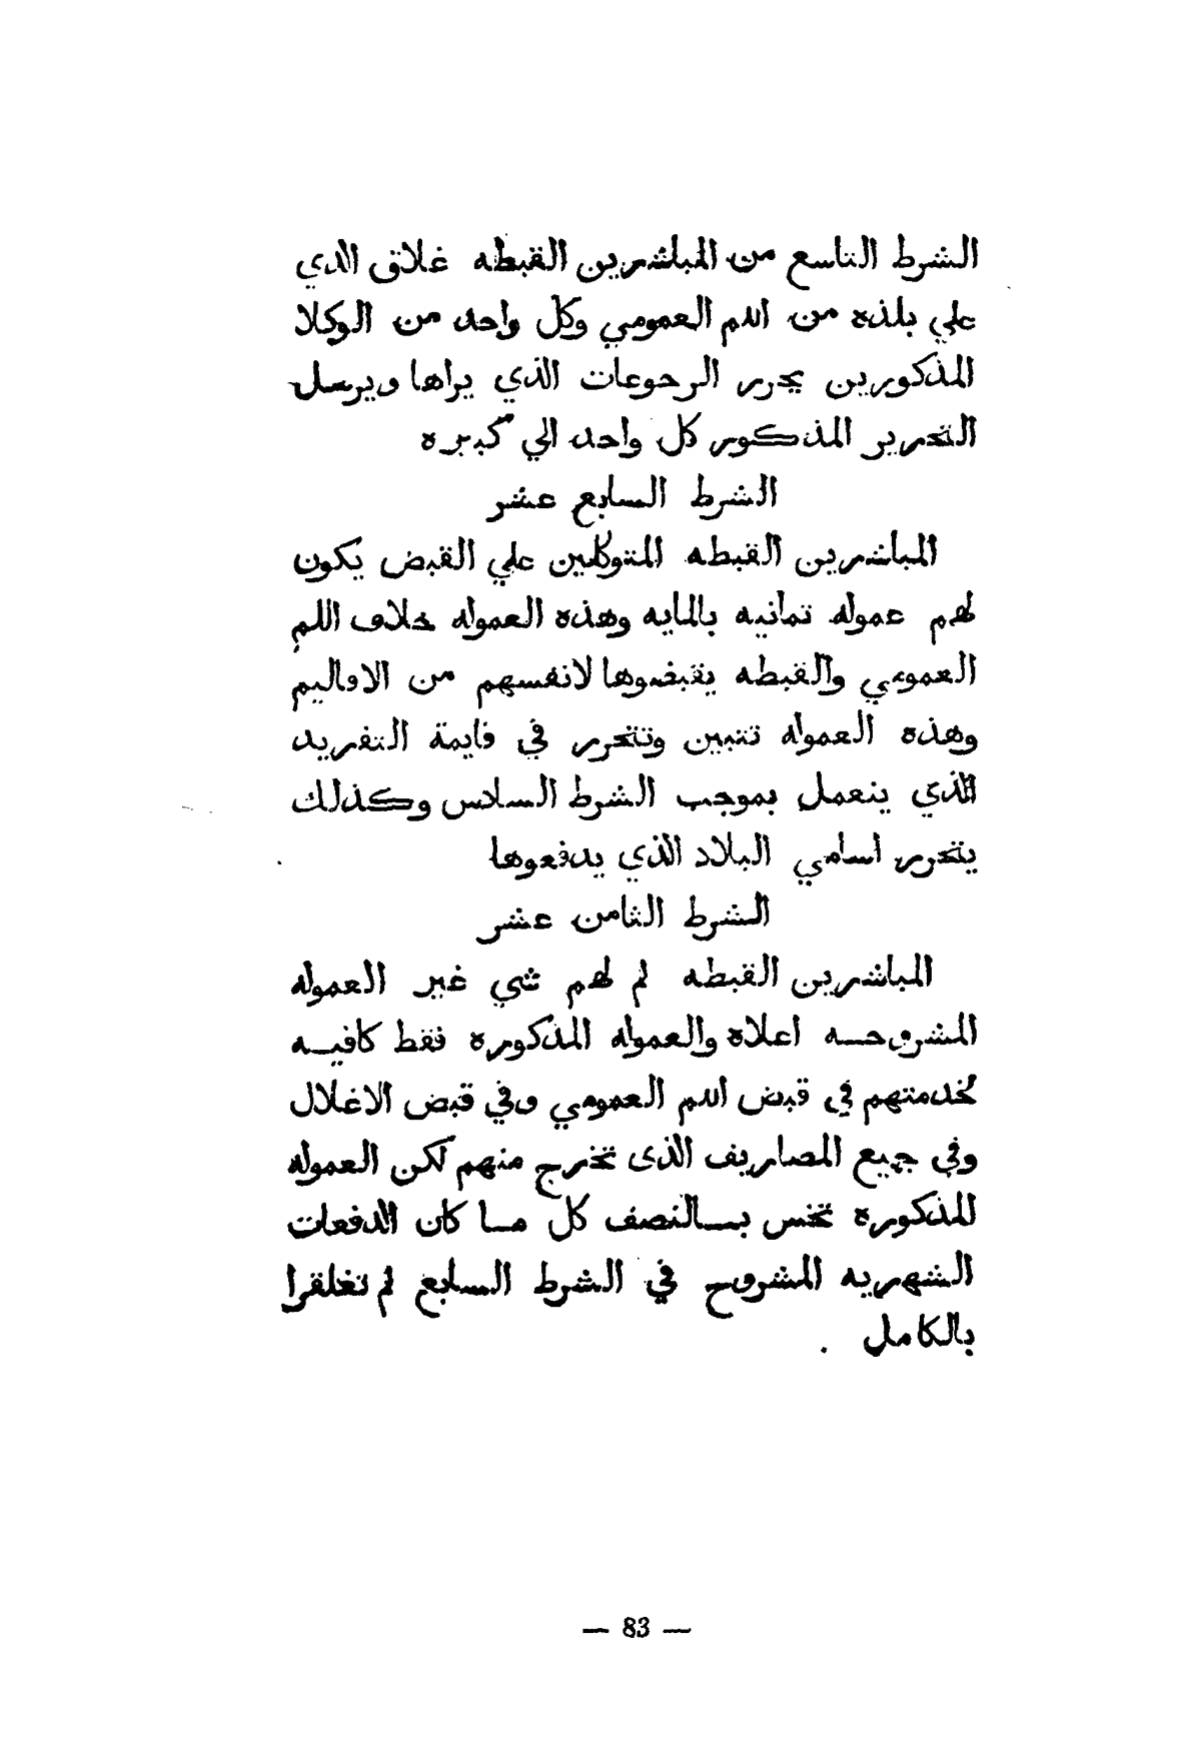 الشرط التاسع من المباشرين القبطه غلاق الدي
علي بلده من اللم العمومي وكل واحد من الوكلا
المذكورين يحرر الرجوعات الذي يراها ويرسل
التحرير المذكور كل واحد الي كبيره
الشرط السابع عشر
المباشرين القبطه المتوكلين علي القبض يكون
لهم عموله تمانيه بالمايه وهذه العموله خلاف اللم
العمومي والقبطه يقبضوها لانفسهم من الاقاليم
وهذه العموله تتبين وتتحرر في قايمة التفريد
الذي ينعمل بموجب الشرط السادس وكذلك
يتحرر اسامي البلاد الذي يدفعوها
الشرط الثامن عشر
المباشرين القبطه لم لهم شي غير العموله
المشروحه اعلاه والعموله المذكوره فقط كافيه
لخدمتهم في قبض اللم العمومي وفي قبض الاغلال
وفي جميع المصاريف الذى تخرج منهم لكن العموله
المذكوره تخس بالنصف كل ما كان الدفعات
الشهريه المشروح في الشرط السابع لم تغلقرا
بالكامل .
— 83 —